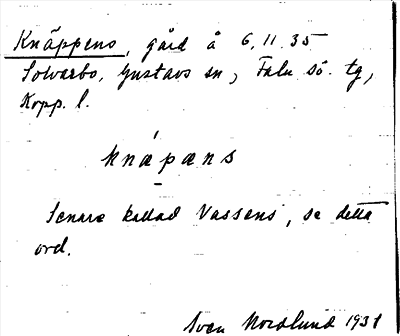 Knäppens, gård å 6.11.35
Solvarbo, Gustavs sn, Falu sö. tg,
Kopp. l.
knäpæns
Senare kallad Vassens, se detta
ord.
Sven Nordlund 1931